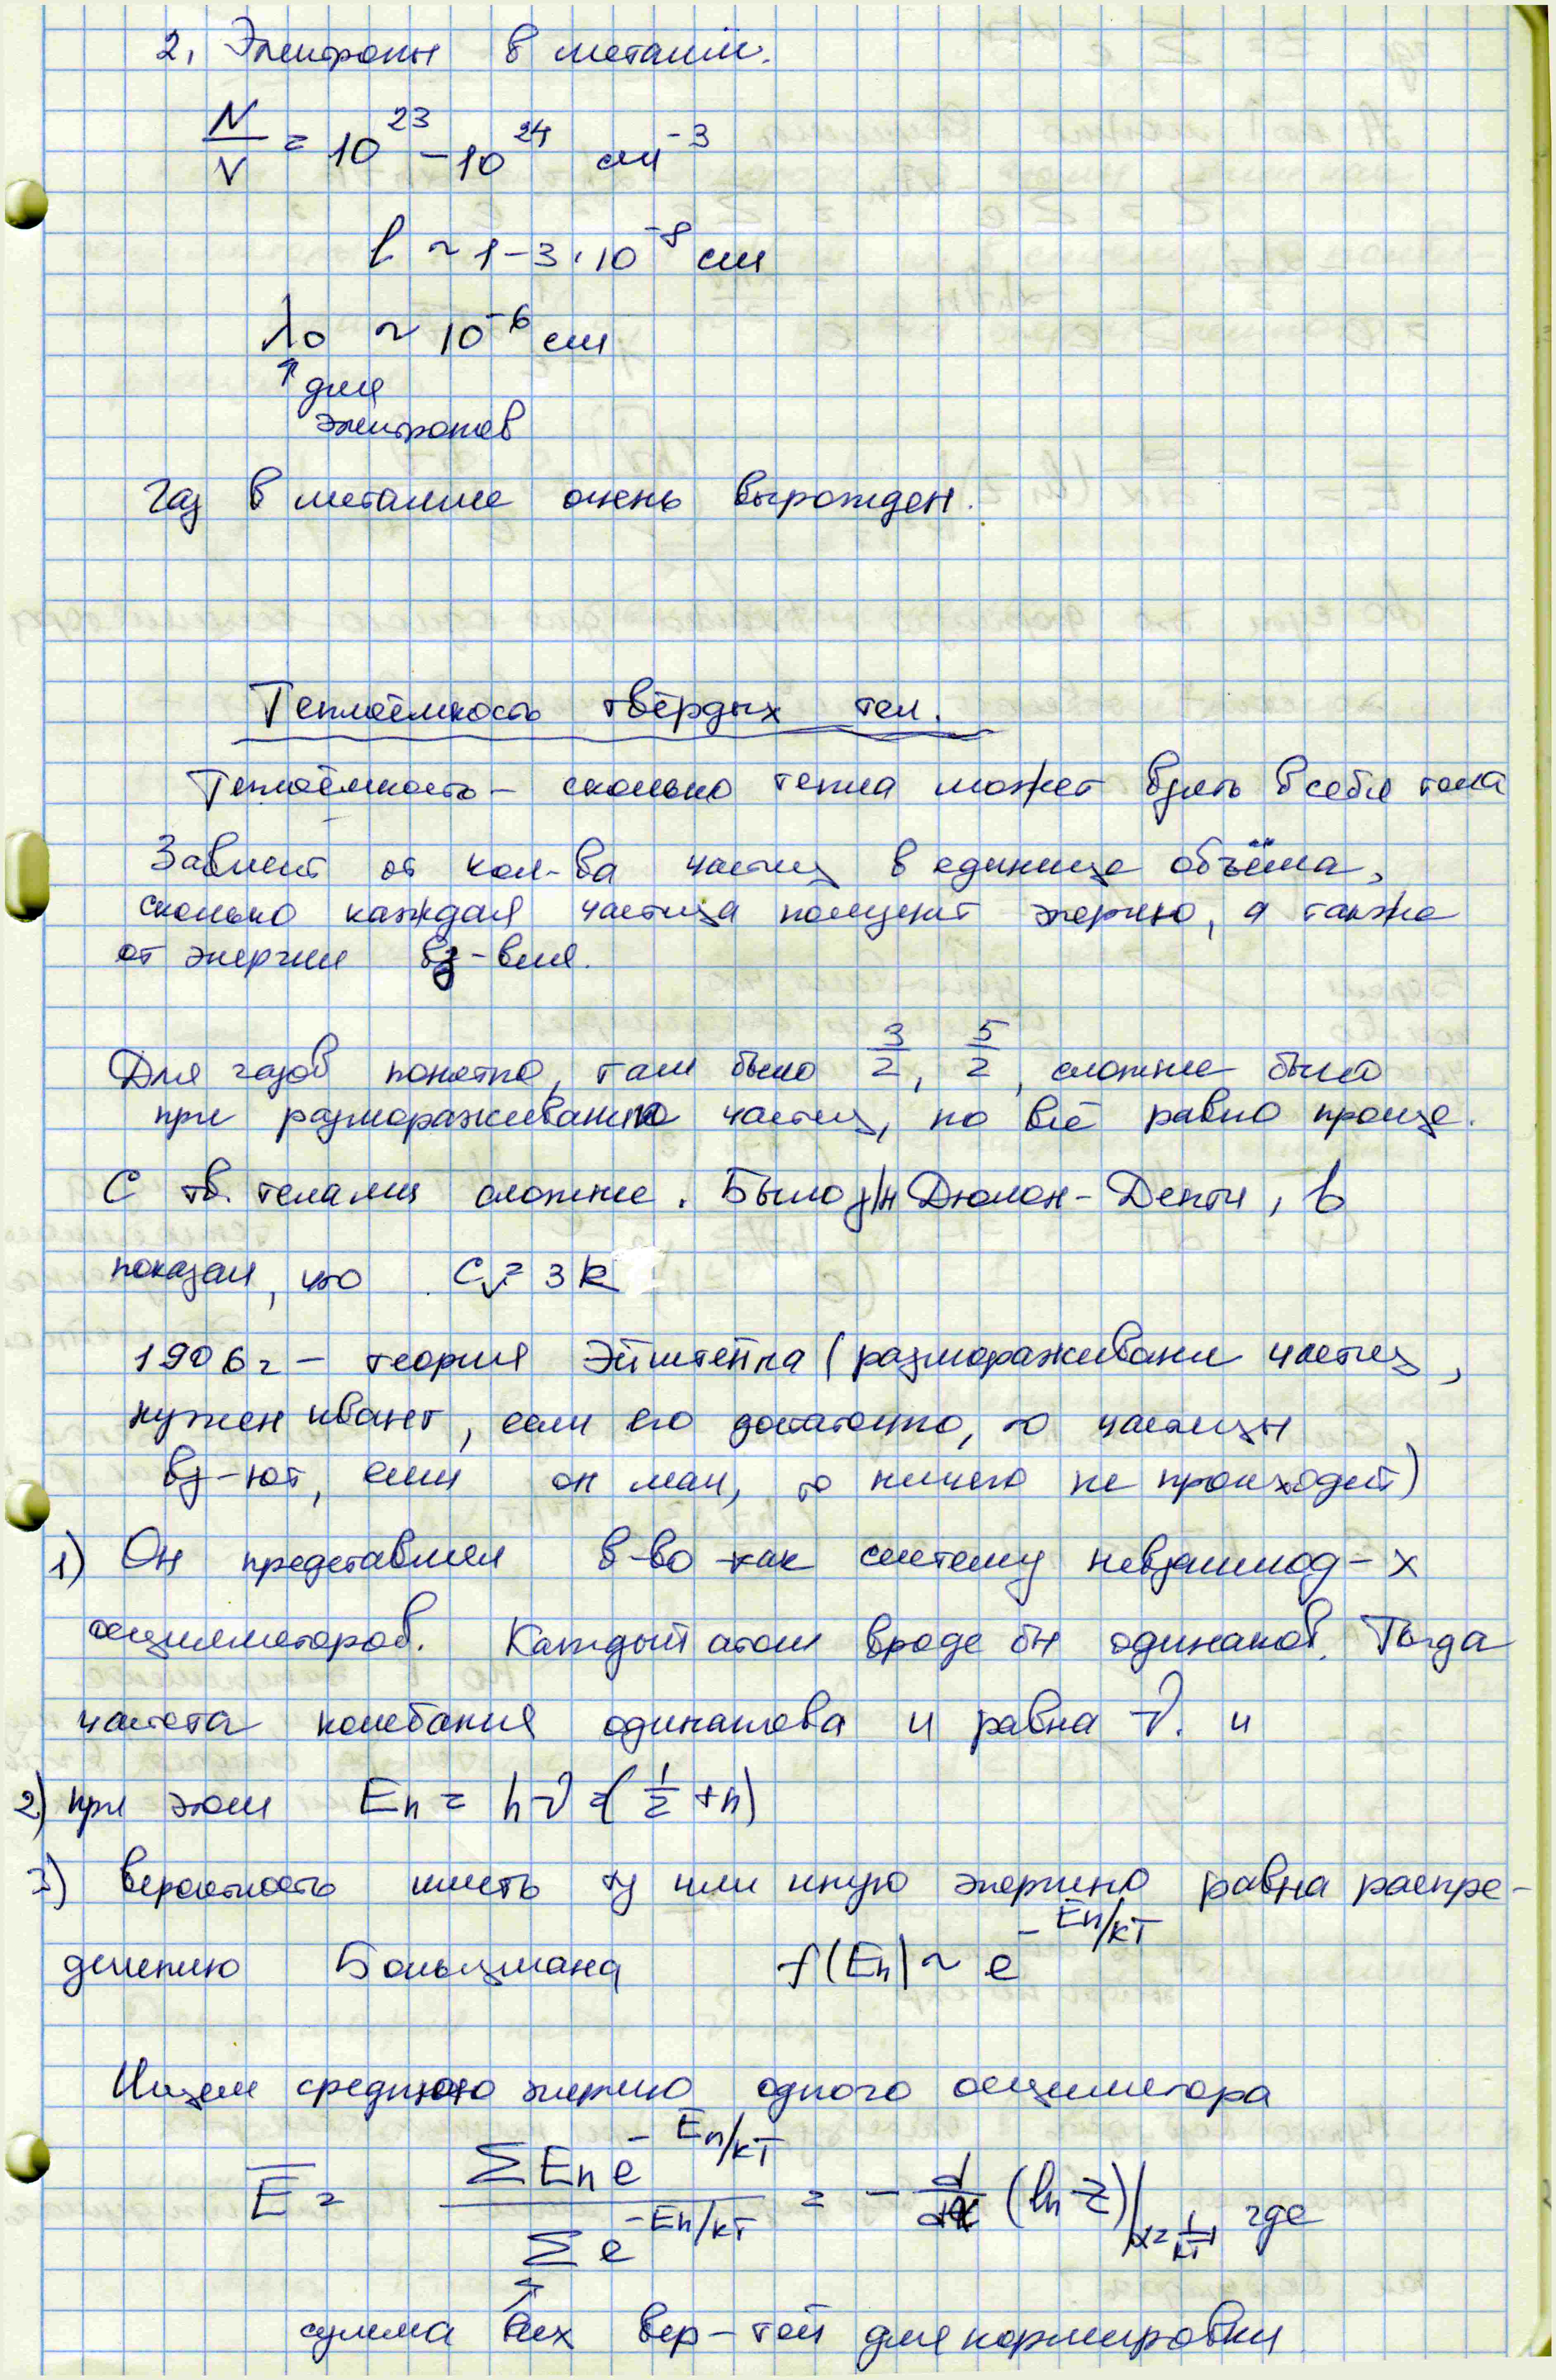 2. Электроны в металле.
N/V = 10^23 – 10^24 см^-3
l ~ 1–3·10^-8 см
λ0 ~ 10^-6 см
↑ для
электронов
Газ в металле очень вырожден.
Теплоёмкость твёрдых тел.
Теплоёмкость – сколько тепла может взять в себя тела
Зависит от кол-ва частиц в единице объёма,
сколько каждая частица получит энергию, а также
от энергии вз-вия.
Для газов понятно, там было 3/2, 5/2, сложнее было
при размораживанию частиц, но всё равно проще.
С тв. телами сложнее. Было з/н Дюлон-Депти, в
показал, что Cv = 3k
1906г – теория Эйнштейна (размораживани частиц,
нужен квант, если его достаточно, то частицы
вз-ют, если он мал, то ничего не происходит)
1) Он представлял в-во как систему невзаимод-х
осцилляторов. Каждый атом вроде бы одинаков. Тогда
частота колебания одинакова и равна ν. и
2) при этом En = hν (1/2 + n)
3) вероятность иметь ту или иную энергию равна распре-
делению Больцмана f(En) ~ e^-En/kT
Ищем среднюю энергию одного осциллятора
E̅ = ΣEn e^-En/kT / Σ e^-En/kT = - d/dα (ln Z)|α=1/kT где
↑
сумма всех вер-тей для нормировки